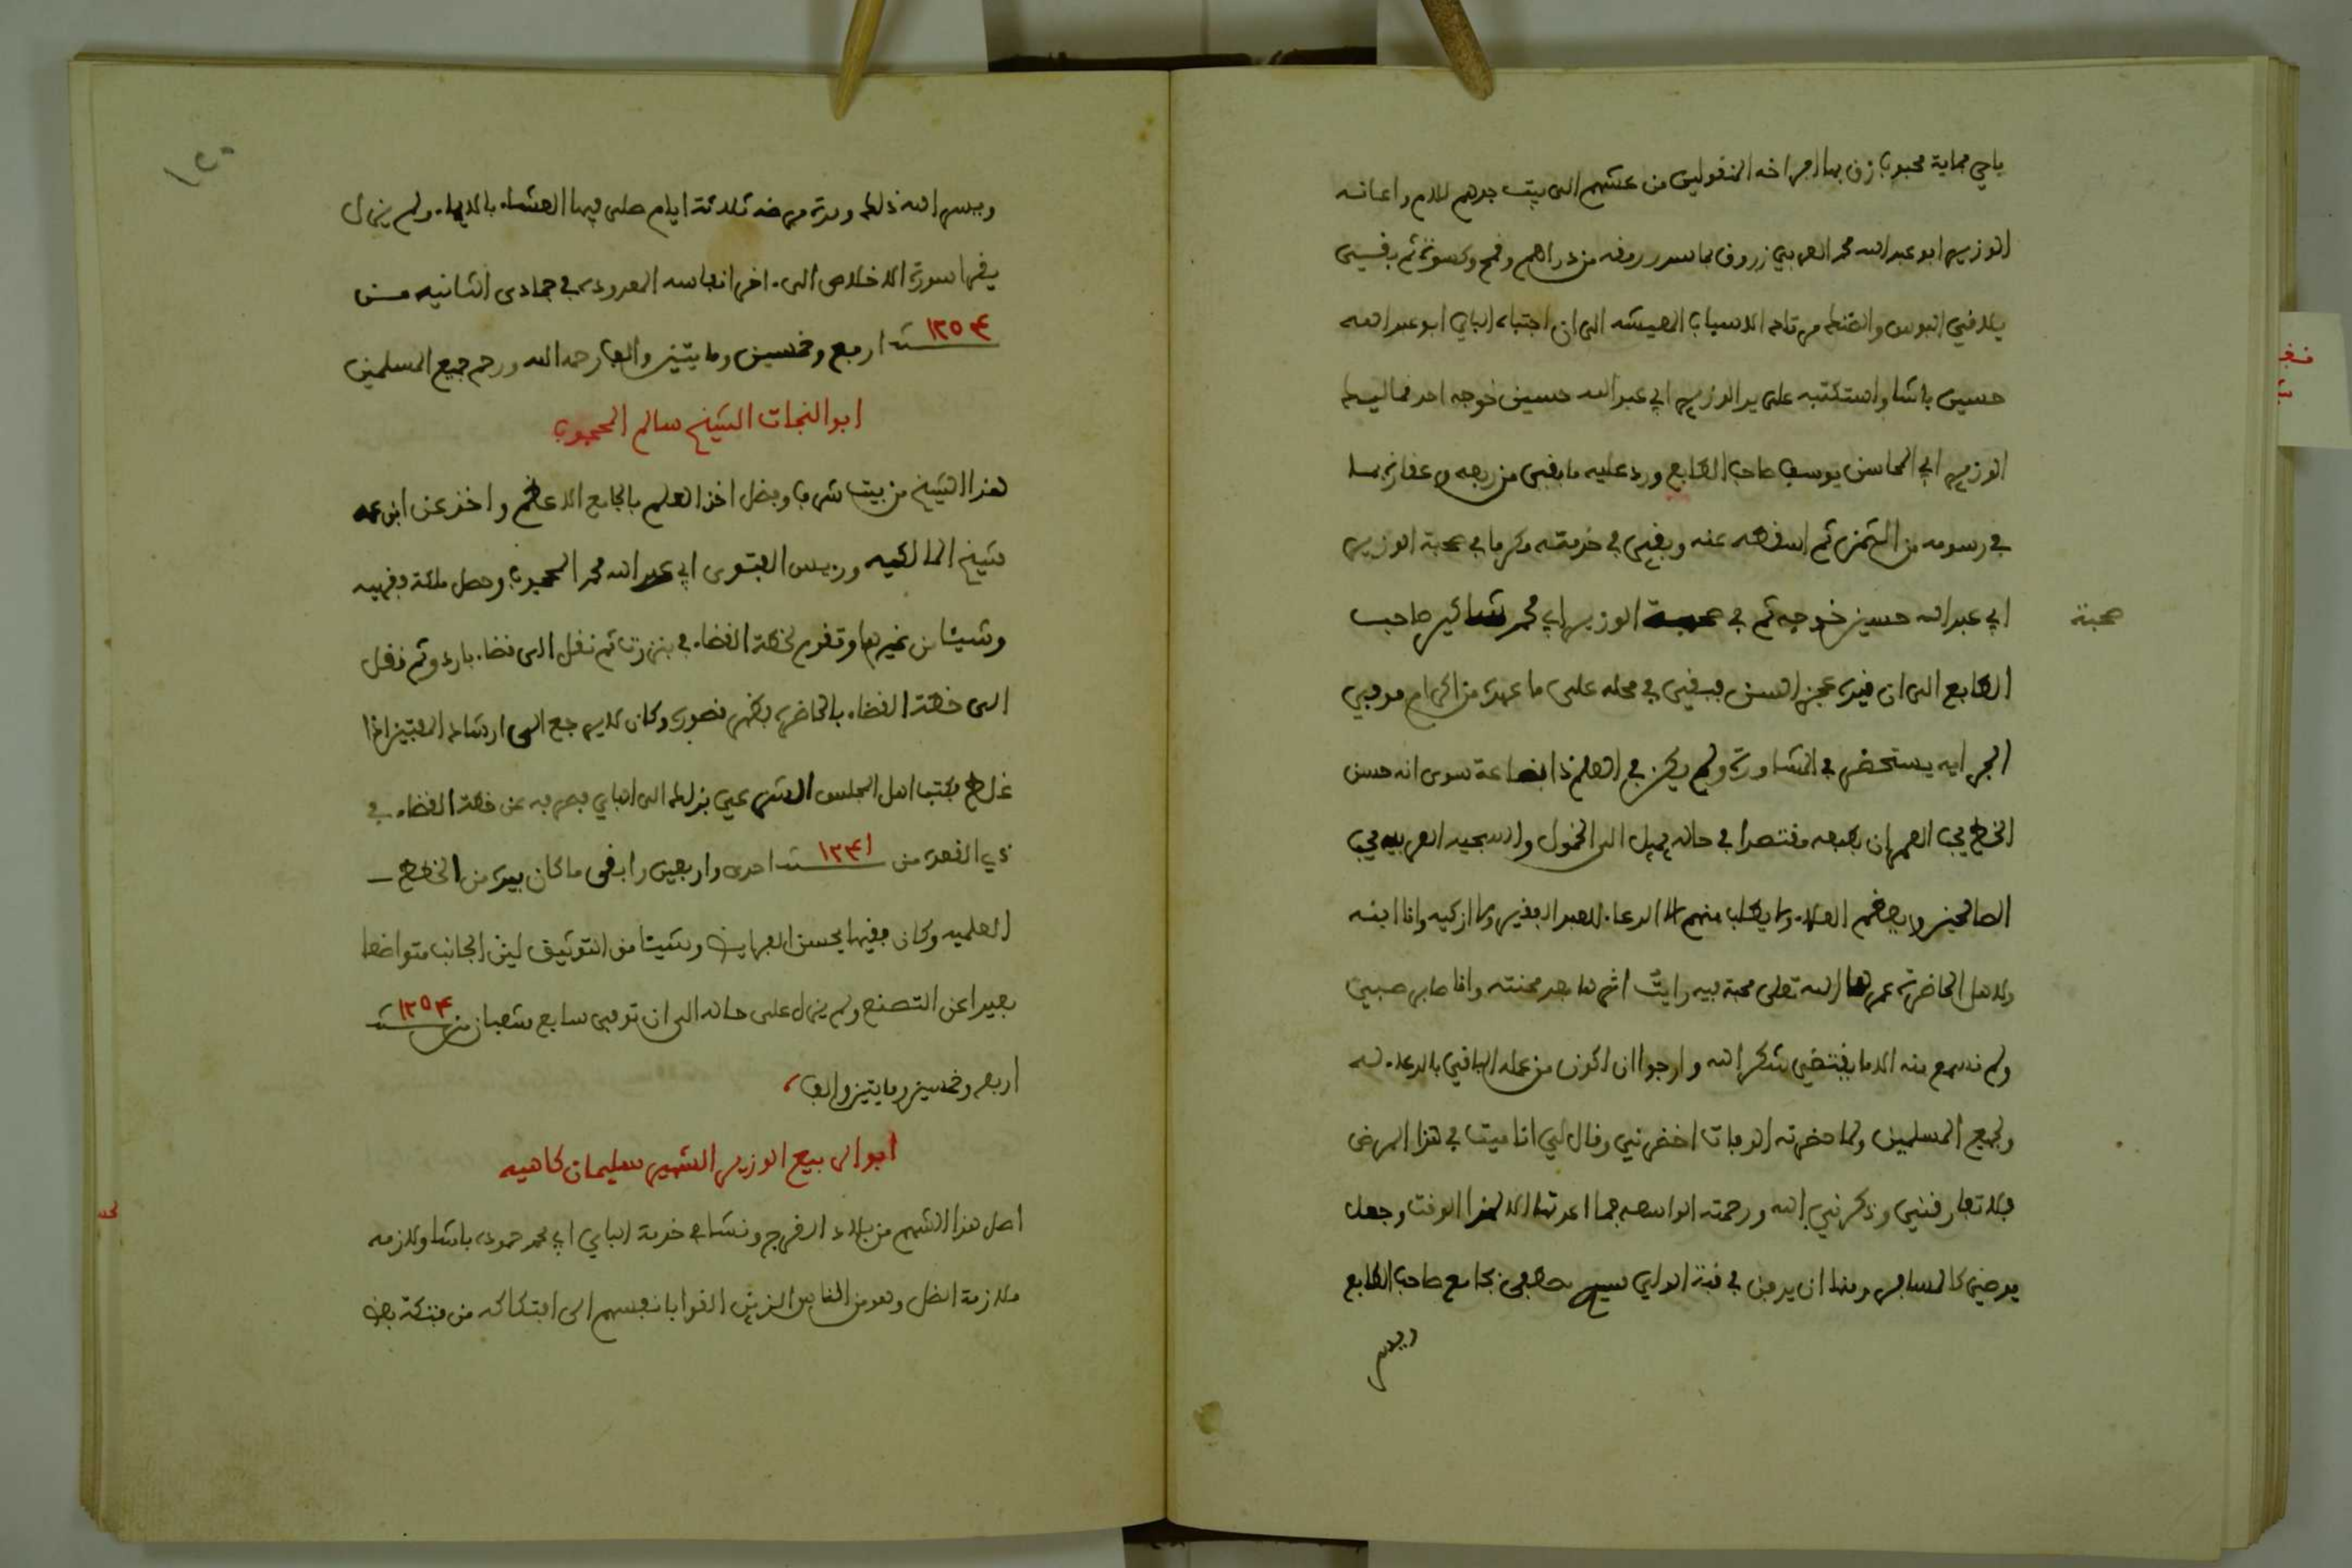 ياجي حماية محبوب زف بها لافراخه المنقولين من عشهم الى بيت جدهم للام واعانه
الوزير ابو عبد الله محمد العربي زروق بما سد رمقه من دراهم وقمح وكسوة ثم بقي
يلاقي البوس والضنك من تلك الاسباب المعيشه الى ان اجتباه الباي ابو عبد الله
حسين باشا واستكتبه على يد الوزير ابي عبد الله حسين خوجه احد مماليك
الوزير ابي المحاسن يوسف صاحب الطابع ورد عليه ما بقي من ربعه وعقاره بما
في رسومه من الثمن ثم اسقطه عنه وبقي في خدمته مكرما في صحبة الوزير
ابي عبد الله حسين خوجه ثم في صحبة الوزير ابي محمد شاكير صاحب
صحبة
الطابع الى ان قيده عجز السن فبقي في محله على ما عهده من اكرام موفي
الجرايه يستحضر في المشاورة ولم يكن في العلم ذا بضاعة سوى انه حسن
الخط يحب العمران بطبعه مقتصدا في حاله يميل الى الخمول والسجيه العربيه يحب
الصالحين ويعظم العلماء ولا يطلب منهم الا الدعاء للعبد الفقير ولا ازكيه وانا ابنه
ولاهل الحاضرة عمرها الله تعلى محبة فيه رايت اثرها بعد محنته وانا صابر صبي
ولم نسمع منه الا ما يقتضي شكر الله وارجوا ان اكون من عمله الباقي بالدعاء له
ولجميع المسلمين ولما حضرته الوفات احضرني وقال لي انا ميت في هذا المرض
فلا تفارقني وذكرني بالله ورحمته الواسعه فما اعدتك الا لهذا الوقت وجعل
يوصي كالمسافر ومنها ان يدفن في قبة الولي سيدي مصطفى بجامع صاحب الطابع
ويسر
١٥٠
ويسر الله ذلك ومدة مرضه ثلاثة ايام صلى فيها العشاء بالايماء ولم يزل
يقرا سورة الاخلاص الى اخر انفاسه المعدوده في جمادى الثانيه من
سنة ١٢٥٤ اربع وخمسين ومايتين والف رحمه الله ورحم جميع المسلمين
ابو النجات الشيخ سالم المحجوب
هذا الشيخ من بيت شرف وفضل اخذ العلم بالجامع الاعظم واخذ عن ابن عمه
شيخ المالكيه وريس الفتوى ابي عبد الله محمد المحجوب وحصل ملكة فقهيه
وشيئا من غيرها وتقدم لخطة القضاء في بنزرت ثم نقل الى قضاء باردو ثم نقل
الى خطة القضاء بالحاضره فظهر قصوره وكان لا يرجع الى ارشاد المفتين اذا
غلط فكتب اهل المجلس الشرعي بذلك الى الباي فصرفه عن خطة القضاء في
ذي القعده من سنة ١٢٤١ احدى واربعين وابقى ما كان بيده من الخطط
العلميه وكان فقيها يحسن الفرايض وشيئا من التوثيق لين الجانب متواضعا
بعيدا عن التصنع ولم يزل على حاله الى ان توفى سابع شعبان من سنة ١٢٥٤
اربعه وخمسين ومايتين والف
ابو الربيع الوزير الشهير سليمان كاهيه
اصل هذا الشهم من بلاد الفرج ونشا في خدمة الباي ابي محمد حموده باشا ولازمه
ملازمة الظل وهو من الخاص الذين القوا بانفسهم الى افتكاكه من فتكة بعض